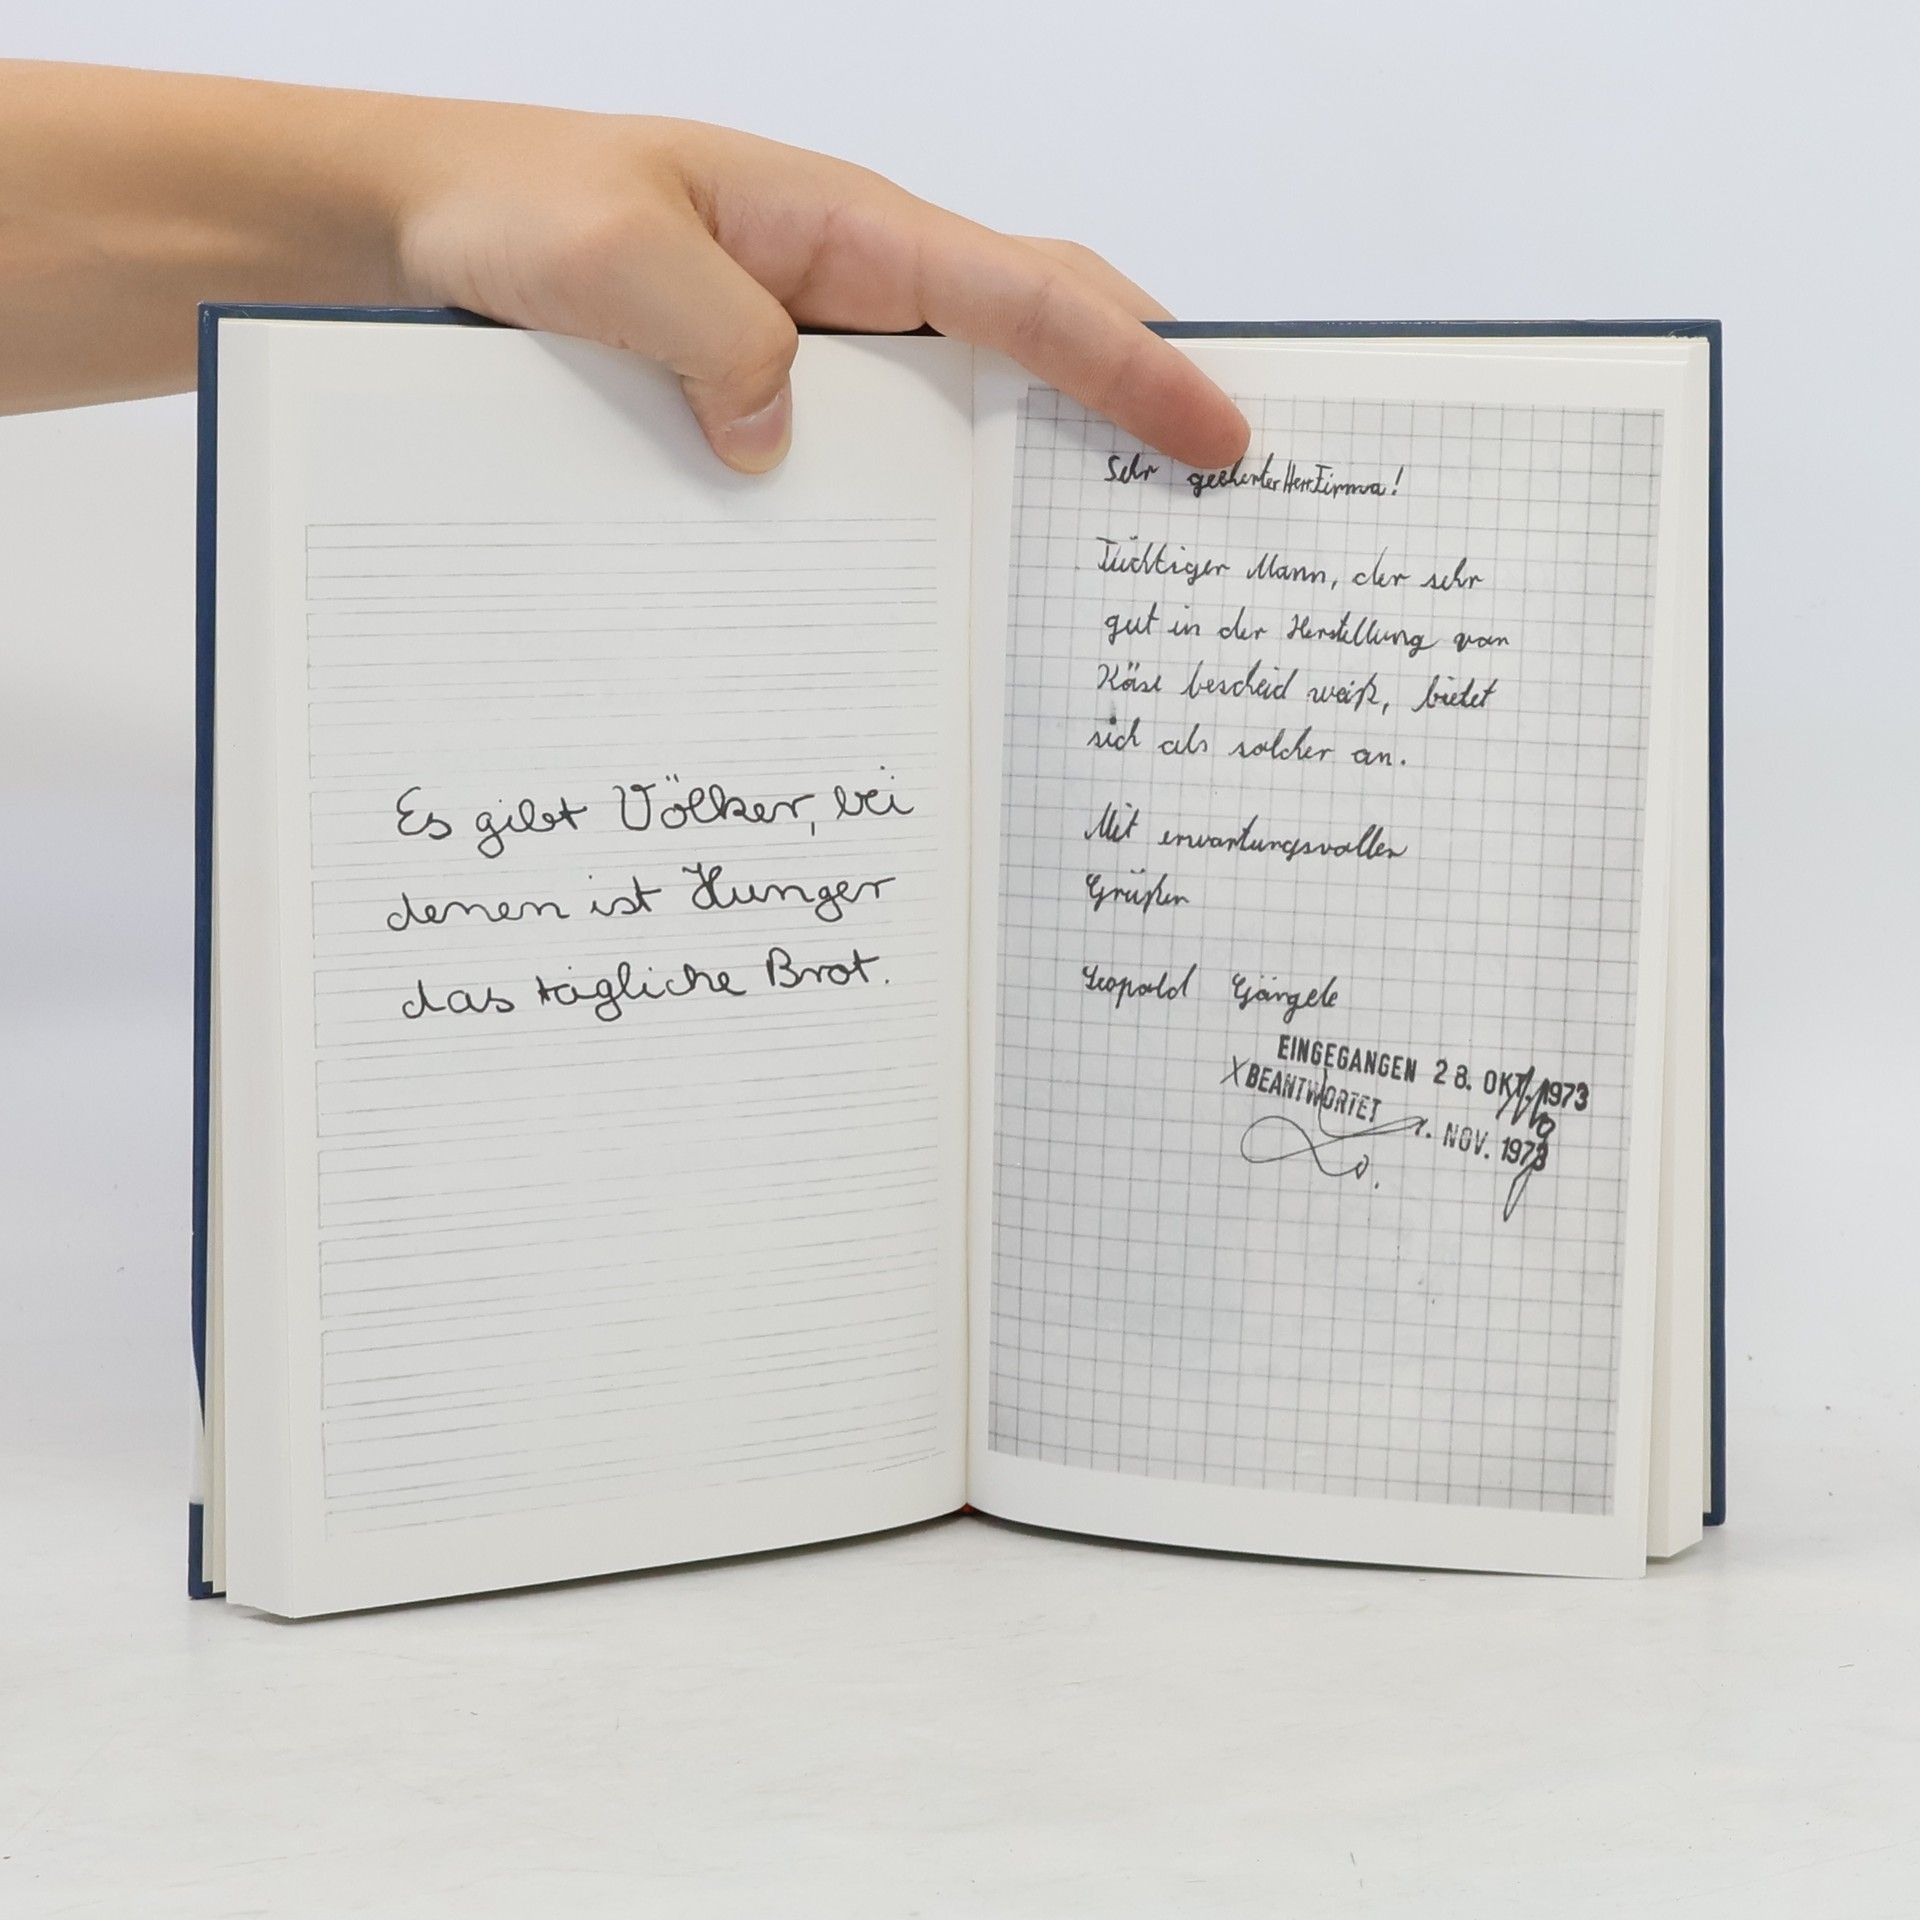 Es gibt Völker, bei
denen ist Hunger
das tägliche Brot.
Sehr geehrter Herr Firma!
Tüchtiger Mann, der sehr
gut in der Herstellung von
Käse bescheid weiß, bietet
sich als solcher an.
Mit erwartungsvollen
Grüßen
Leopold Gängele
EINGEGANGEN 28. OKT. 1973
X BEANTWORTET 7. NOV. 1973